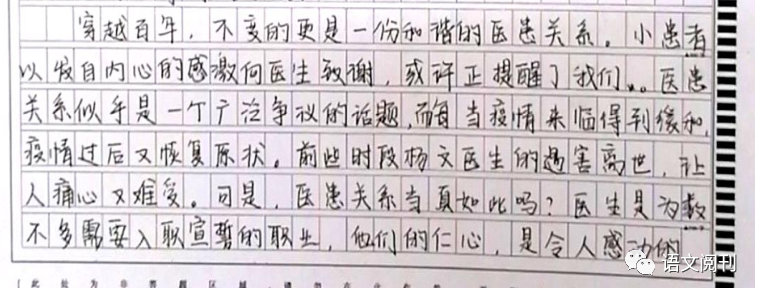 穿越百年，不变的更是一份和谐的医患关系。小患者
以发自内心的感激向医生致谢，或许正提醒了我们。医患
关系似乎是一个广泛争议的话题，而每当疫情来临得到缓和，
疫情过后又恢复原状。前些时段杨文医生的遇害离世，让
人痛心又难受。可是，医患关系当真如此吗？医生是为数
不多需要入职宣誓的职业，他们的仁心，是令人感动的
语文阅刊